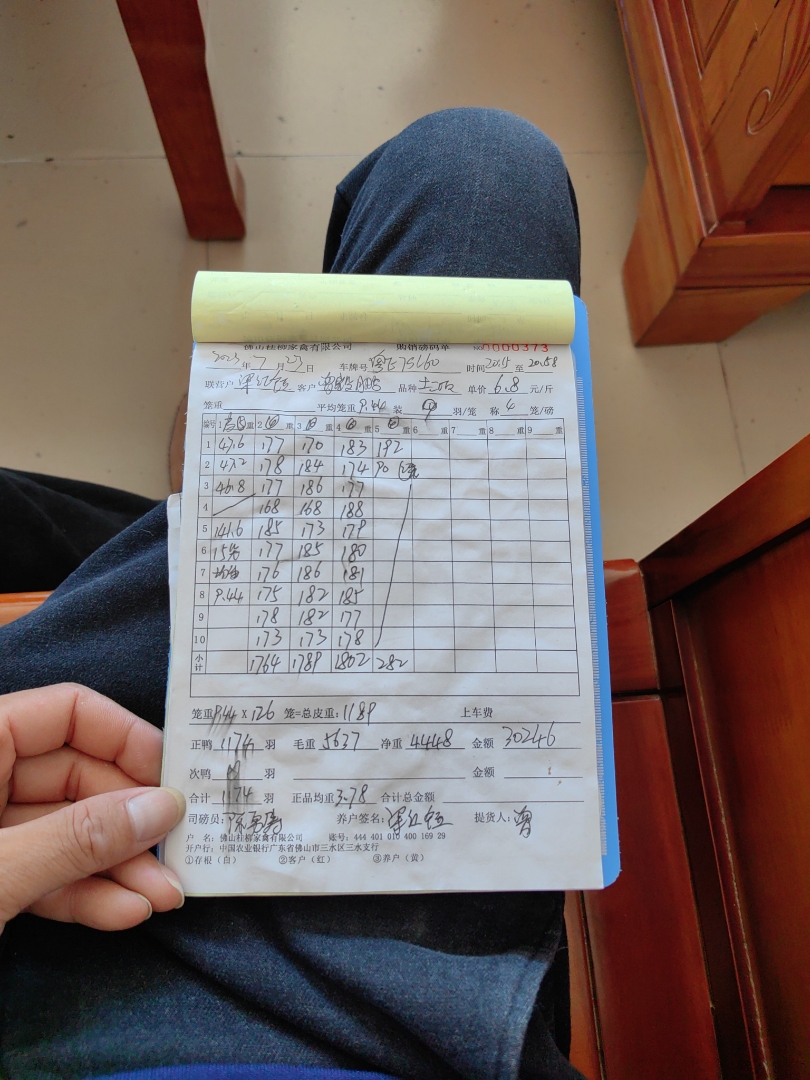 佛山桂柳家禽有限公司 购销磅码单 No 0000373
2023年7月27日 车牌号 时间20.15至20.58
联营户 客户 品种 单价6.8元/斤
笼重 平均笼重9.44 装 羽/笼 称4笼/磅
编号 1 重 2 重 3 重 4 重 5 重 6 重 7 重 8 重 9 重
1 47.6 177 170 183 192
2 47.2 178 184 174 90
3 46.8 177 186 177
4 168 168 188
5 141.6 185 173 179
6 15 177 185 180
7 176 186 181
8 9.44 175 182 185
9 178 182 177
10 173 173 178
小计 1764 1789 1802 282
笼重9.44 X 126 笼=总皮重：1189 上车费
正鸭 1174 羽 毛重 5637 净重 4448 金额 30246
次鸭 羽 金额
合计 1174 羽 正品均重 3.78 合计总金额
司磅员： 养户签名： 提货人：
户 名：佛山桂柳家禽有限公司 账号：444 401 010 400 169 29
开户行：中国农业银行广东省佛山市三水区三水支行
①存根（白） ②客户（红） ③养户（黄）